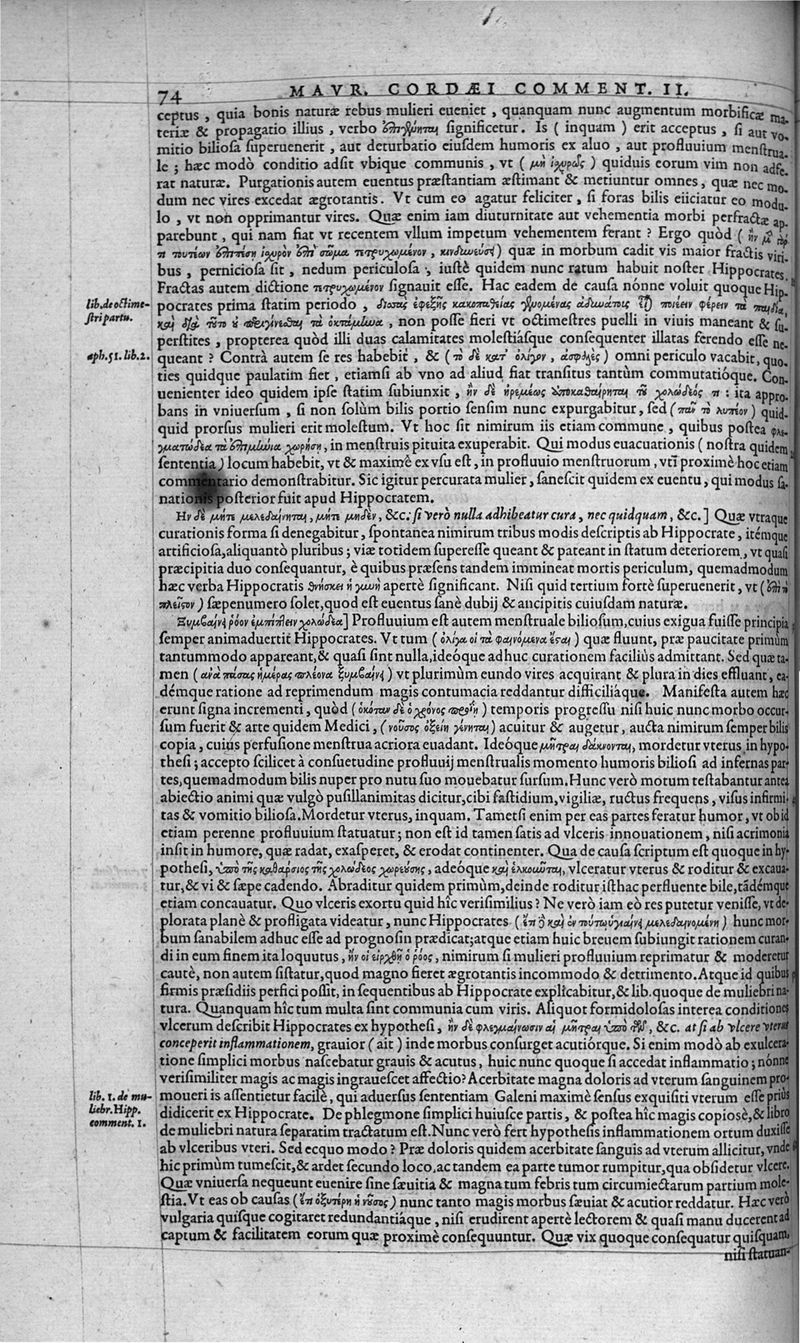 74 MAVR. CORDÆI COMMENT. II.
ceptus , quia bonis naturæ rebus mulieri eueniet , quanquam nunc augmentum morbificæ ma-
teriæ & propagatio illius , verbo significetur. Is ( inquam ) erit acceptus , si aut vo-
mitio biliosa superuenerit , aut deturbatio eiusdem humoris ex aluo , aut profluuium menstrua-
le ; hæc modò conditio adsit vbique communis , vt ( μὴ ἰχυρῶς ) quiduis eorum vim non adfe-
rat naturæ. Purgationis autem euentus præstantiam æstimant & metiuntur omnes , quæ nec mo-
dum nec vires excedat ægrotantis. Vt cum eo agatur feliciter , si foras bilis eiiciatur eo modu-
lo , vt non opprimantur vires. Quæ enim iam diuturnitate aut vehementia morbi perfractæ ap-
parebunt , qui nam fiat vt recentem vllum impetum vehementem ferant ? Ergo quòd (
) quæ in morbum cadit vis maior fractis viri-
bus , perniciosa sit , nedum periculosa , iustè quidem nunc ratum habuit noster Hippocrates.
Fractas autem dictione τετρυχωμένον signauit esse. Hac eadem de causa nónne voluit quoque Hip-
lib. de octime-
stri partu.
pocrates prima statim periodo ,
, non posse fieri vt octimestres puelli in viuis maneant & su-
perstites , propterea quòd illi duas calamitates molestiásque consequenter illatas ferendo esse ne-
aph. 51. lib. 2.
queant ? Contrà autem se res habebit , & ( τὸ δὲ κατ' ὀλίγον , ἀσφαλὲς ) omni periculo vacabit, quo-
ties quidque paulatim fiet , etiamsi ab vno ad aliud fiat transitus tantùm commutatióque. Con-
uenienter ideo quidem ipse statim subiunxit , : ita appro-
bans in vniuersum , si non solùm bilis portio sensim nunc expurgabitur, sed ( πᾶν τὸ λυπέον ) quid-
quid prorsus mulieri erit molestum. Vt hoc sit nimirum iis etiam commune , quibus postea
, in menstruis pituita exuperabit. Qui modus euacuationis ( nostra quidem
sententia ) locum habebit, vt & maximè ex vsu est , in profluuio menstruorum , vti proximè hoc etiam
commentario demonstrabitur. Sic igitur percurata mulier , sanescit quidem ex euentu , qui modus sa-
nationis posterior fuit apud Hippocratem.
Ην δὲ μήτε μελεδαίνηται , μήτε μηδὲν , &c: si verò nulla adhibeatur cura , nec quidquam , &c. ] Quæ vtraque
curationis forma si denegabitur , spontanea nimirum tribus modis descriptis ab Hippocrate , itémque
artificiosa, aliquantò pluribus ; viæ totidem superesse queant & pateant in statum deteriorem , vt quasi
præcipitia duo consequantur, è quibus præsens tandem immineat mortis periculum, quemadmodum
hæc verba Hippocratis θνήσκει ἡ γυνὴ apertè significant. Nisi quid tertium fortè superuenerit , vt ( ἐπὶ τὸ
πλεῖστον ) sæpenumero solet, quod est euentus sanè dubij & ancipitis cuiusdam naturæ.
Profluuium est autem menstruale biliosum, cuius exigua fuisse principia
semper animaduertit Hippocrates. Vt tum ( ὀλίγα οἱ τὰ φαινόμενα ἔσται ) quæ fluunt, præ paucitate primùm
tantummodo appareant, & quasi sint nulla, ideóque adhuc curationem faciliùs admittant. Sed quæ ta-
men ( ) vt plurimùm eundo vires acquirant & plura in dies effluant , ea-
démque ratione ad reprimendum magis contumacia reddantur difficiliáque. Manifesta autem hæc
erunt signa incrementi , quòd ( ὁκόταν δὲ ὁ χρόνος προΐῃ ) temporis progressu nisi huic nunc morbo occur-
sum fuerit & arte quidem Medici , ( νοῦσος ὀξείη γίνηται ) acuitur & augetur , aucta nimirum semper bilis
copia, cuius perfusione menstrua acriora euadant. Ideóque μῆτραι δάκνονται, mordetur vterus in hypo-
thesi ; accepto scilicet à consuetudine profluuij menstrualis momento humoris biliosi ad infernas par-
tes, quemadmodum bilis nuper pro nutu suo mouebatur sursum. Hunc verò motum testabantur antea
abiectio animi quæ vulgò pusillanimitas dicitur, cibi fastidium, vigiliæ, ructus frequens, visus infirmi-
tas & vomitio biliosa. Mordetur vterus, inquam. Tametsi enim per eas partes feratur humor, vt ob id
etiam perenne profluuium statuatur ; non est id tamen satis ad vlceris innouationem, nisi acrimonia
insit in humore, quæ radat, exasperet, & erodat continenter. Qua de causa scriptum est quoque in hy-
pothesi, ὑπὸ τῆς καθάρσιος τῆς χολώδεος χωρεύσης, adeóque καὶ ἑλκοῦνται, vlceratur vterus & roditur & excaua-
tur, & vi & sæpe cadendo. Abraditur quidem primùm, deinde roditur isthac perfluente bile, tādémque
etiam concauatur. Quo vlceris exortu quid hîc verisimilius ? Ne verò iam eò res putetur venisse, vt de-
plorata planè & profligata videatur , nunc Hippocrates ( ) hunc mor-
bum sanabilem adhuc esse ad prognosin prædicat; atque etiam huic breuem subiungit rationem curan-
di in eum finem ita loquutus , ἢν οἱ εἰρχθῇ ὁ ῥόος , nimirum si mulieri profluuium reprimatur & moderetur
cautè, non autem sistatur, quod magno fieret ægrotantis incommodo & detrimento. Atque id quibus
firmis præsidiis perfici possit, in sequentibus ab Hippocrate explicabitur, & lib. quoque de muliebri na-
tura. Quanquam hîc tum multa sint communia cum viris. Aliquot formidolosas interea conditiones
vlcerum describit Hippocrates ex hypothesi, , &c. at si ab vlcere vterus
conceperit inflammationem, grauior ( ait ) inde morbus consurget acutiórque. Si enim modò ab exulcera-
tione simplici morbus nascebatur grauis & acutus , huic nunc quoque si accedat inflammatio ; nónne
verisimiliter magis ac magis ingrauescet affectio? Acerbitate magna doloris ad vterum sanguinem pro-
lib. 1. de mu-
liebr. Hipp.
comment. 1.
moueri is assentietur facilè, qui aduersus sententiam Galeni maximè sensus exquisiti vterum esse priùs
didicerit ex Hippocrate. De phlegmone simplici huiusce partis, & postea hîc magis copiosè, & libro
de muliebri natura separatim tractatum est. Nunc verò fert hypothesis inflammationem ortum duxisse
ab vlceribus vteri. Sed ecquo modo ? Præ doloris quidem acerbitate sanguis ad vterum allicitur, vnde
hic primùm tumescit, & ardet secundo loco, ac tandem ea parte tumor rumpitur, qua obsidetur vlcere.
Quæ vniuersa nequeunt euenire sine sæuitia & magna tum febris tum circumiectarum partium mole-
stia. Vt eas ob causas ( ἔτι ὀξυτέρη ἡ νοῦσος ) nunc tanto magis morbus sæuiat & acutior reddatur. Hæc verò
vulgaria quisque cogitaret redundantiáque , nisi erudirent apertè lectorem & quasi manu ducerent ad
captum & facilitatem eorum quæ proximè consequuntur. Quæ vix quoque consequatur quisquam,
nisi statuan-